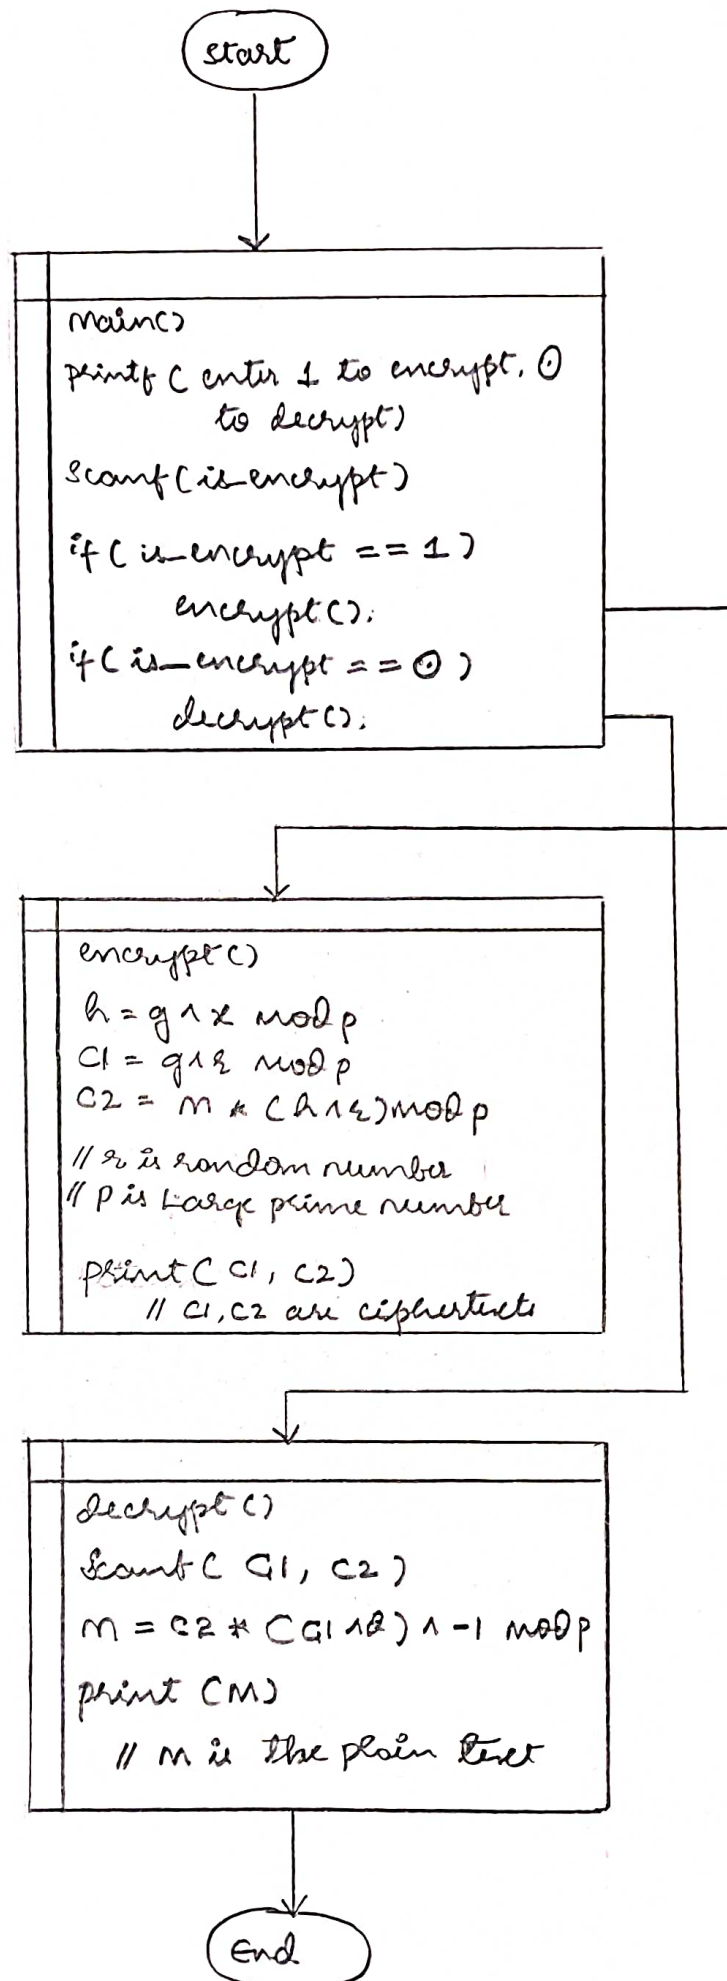 start
main()
printf ( enter 1 to encrypt, 0
to decrypt)
scanf (is_encrypt)
if ( is_encrypt == 1 )
encrypt();
if ( is_encrypt == 0 )
decrypt();
encrypt()
h = g ^ x mod p
C1 = g^r mod p
C2 = m * (h^r) mod p
// r is random number
// P is Large prime number
print ( C1, C2)
// C1, C2 are ciphertexts
decrypt ()
Scanf ( C1, C2 )
m = C2 * (C1 ^ ) ^ -1 mod p
print (M)
// m is the plain text
End